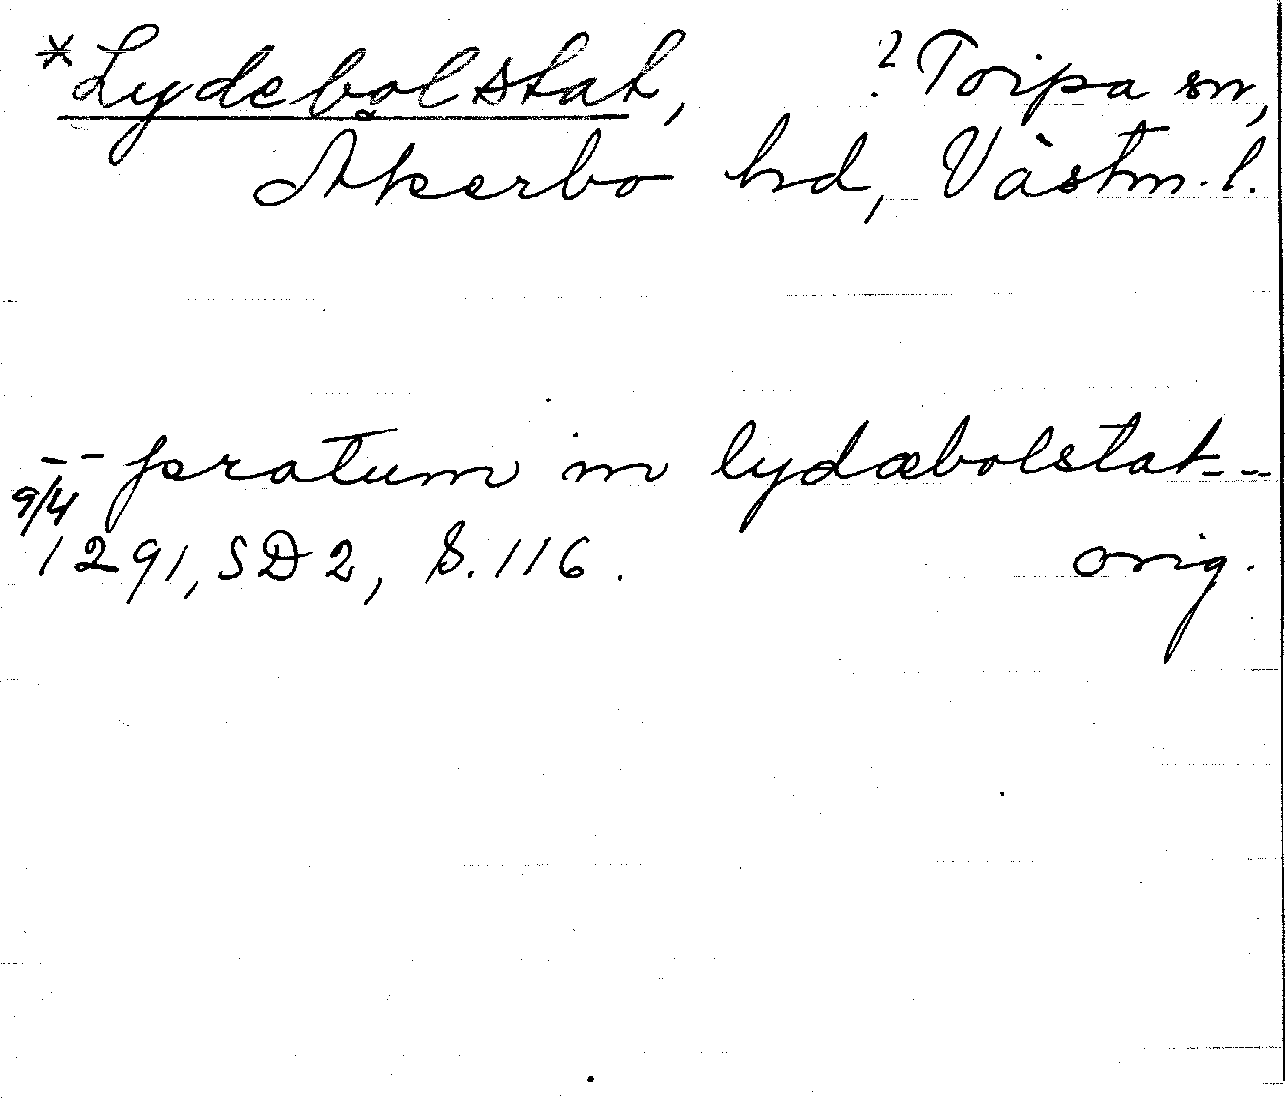 *Lydebolstat, ? Torpa sn,
Åkerbo hd, Västm. l.
-- pratum in lydæbolstat --
9/4
1291, SD 2, S. 116. orig.